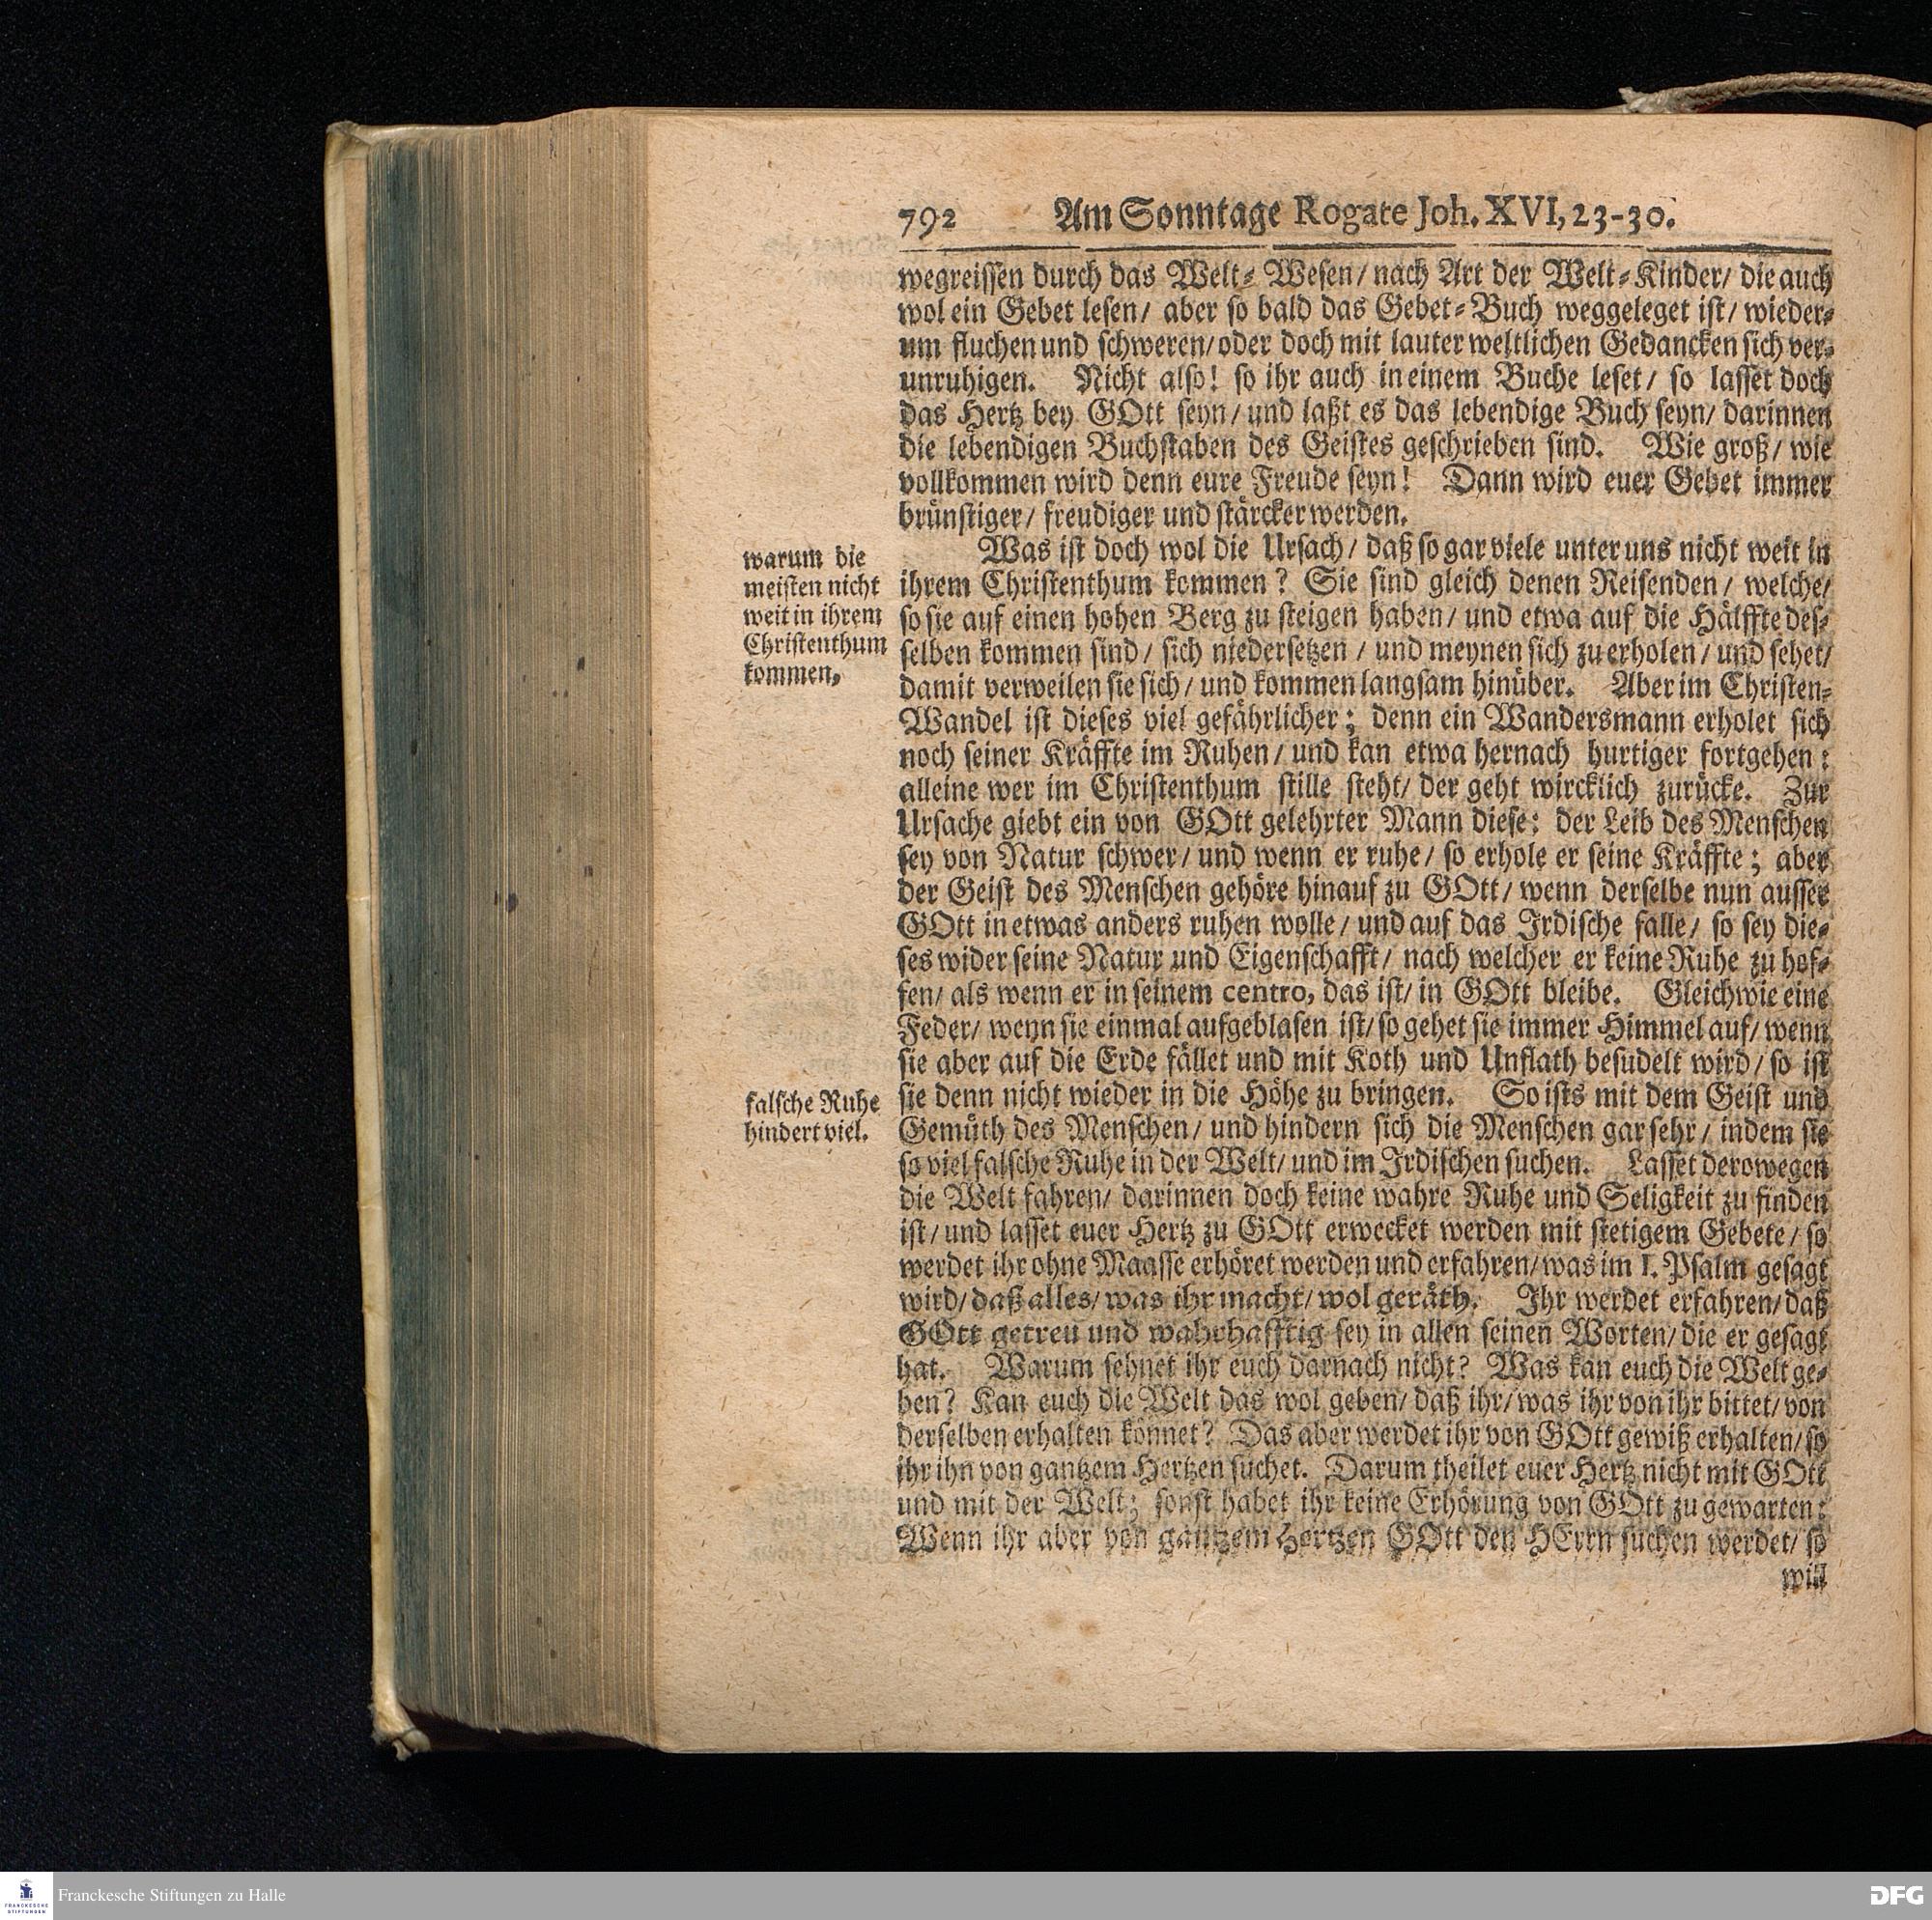 792 Am Sonntage Rogate Joh. XVI, 23-30.
wegreissen durch das Welt-Wesen/ nach Art der Welt-Kinder/ die auch
wol ein Gebet lesen/ aber so bald das Gebet-Buch weggeleget ist/ wieder-
um fluchen und schweren/ oder doch mit lauter weltlichen Gedancken sich ver-
unruhigen. Nicht also! so ihr auch in einem Buche leset/ so lasset doch
das Hertz bey GOtt seyn/ und laßt es das lebendige Buch seyn/ darinnen
die lebendigen Buchstaben des Geistes geschrieben sind. Wie groß/ wie
vollkommen wird denn eure Freude seyn! Dann wird euer Gebet immer
brünstiger/ freudiger und stärcker werden.
warum die
meisten nicht
weit in ihrem
Christenthum
kommen,
Was ist doch wol die Ursach/ daß so gar viele unter uns nicht weit in
ihrem Christenthum kommen? Sie sind gleich denen Reisenden/ welche/
so sie auf einen hohen Berg zu steigen haben/ und etwa auf die Hälffte des-
selben kommen sind/ sich niedersetzen/ und meynen sich zu erholen/ und sehet/
damit verweilen sie sich/ und kommen langsam hinüber. Aber im Christen-
Wandel ist dieses viel gefährlicher; denn ein Wandersmann erholet sich
noch seiner Kräffte im Ruhen/ und kan etwa hernach hurtiger fortgehen:
alleine wer im Christenthum stille steht/ der geht wircklich zurücke. Zur
Ursache giebt ein von GOtt gelehrter Mann diese: der Leib des Menschen
sey von Natur schwer/ und wenn er ruhe/ so erhole er seine Kräffte; aber
der Geist des Menschen gehöre hinauf zu GOtt/ wenn derselbe nun ausser
GOtt in etwas anders ruhen wolle/ und auf das Irdische falle/ so sey die-
ses wider seine Natur und Eigenschafft/ nach welcher er keine Ruhe zu hof-
fen/ als wenn er in seinem centro, das ist/ in GOtt bleibe. Gleichwie eine
Feder/ wenn sie einmal aufgeblasen ist/ so gehet sie immer Himmel auf/ wenn
sie aber auf die Erde fället und mit Koth und Unflath besudelt wird/ so ist
sie denn nicht wieder in die Höhe zu bringen. So ists mit dem Geist und
falsche Ruhe
hindert viel.
Gemüth des Menschen/ und hindern sich die Menschen gar sehr/ indem sie
so viel falsche Ruhe in der Welt/ und im Irdischen suchen. Lasset derowegen
die Welt fahren/ darinnen doch keine wahre Ruhe und Seligkeit zu finden
ist/ und lasset euer Hertz zu GOtt erwecket werden mit stetigem Gebete/ so
werdet ihr ohne Maasse erhöret werden und erfahren/ was im I. Psalm gesagt
wird/ daß alles/ was ihr macht/ wol geräth. Ihr werdet erfahren/ daß
GOtt getreu und wahrhafftig sey in allen seinen Worten/ die er gesagt
hat. Warum sehnet ihr euch darnach nicht? Was kan euch die Welt ge-
ben? Kan euch die Welt das wol geben/ daß ihr/ was ihr von ihr bittet/ von
derselben erhalten könnet? Das aber werdet ihr von GOtt gewiß erhalten/ so
ihr ihn von gantzem Hertzen suchet. Darum theilet euer Hertz nicht mit GOtt
und mit der Welt; sonst habet ihr keine Erhörung von GOtt zu gewarten:
Wenn ihr aber von gantzem Hertzen GOtt den HErrn suchen werdet/ so
will
Franckesche Stiftungen zu Halle
DFG
FRANCKESCHE
STIFTUNGEN